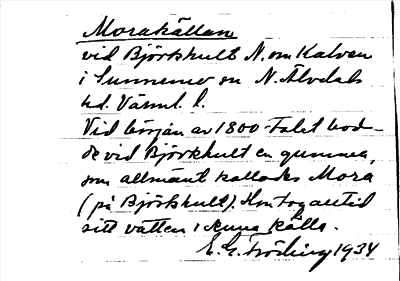 Morakällan
vid Björkhult N. om Kalven
i Sunnemo sn N. Älvdals
hd. Värml. l.
Vid början av 1800-talet bod-
de vid Björkhult en gumma,
som allmänt kallades Mora
(på Björkhult). Hon tog alltid
sitt vatten i denna källa.
E. G. Fröding 1934